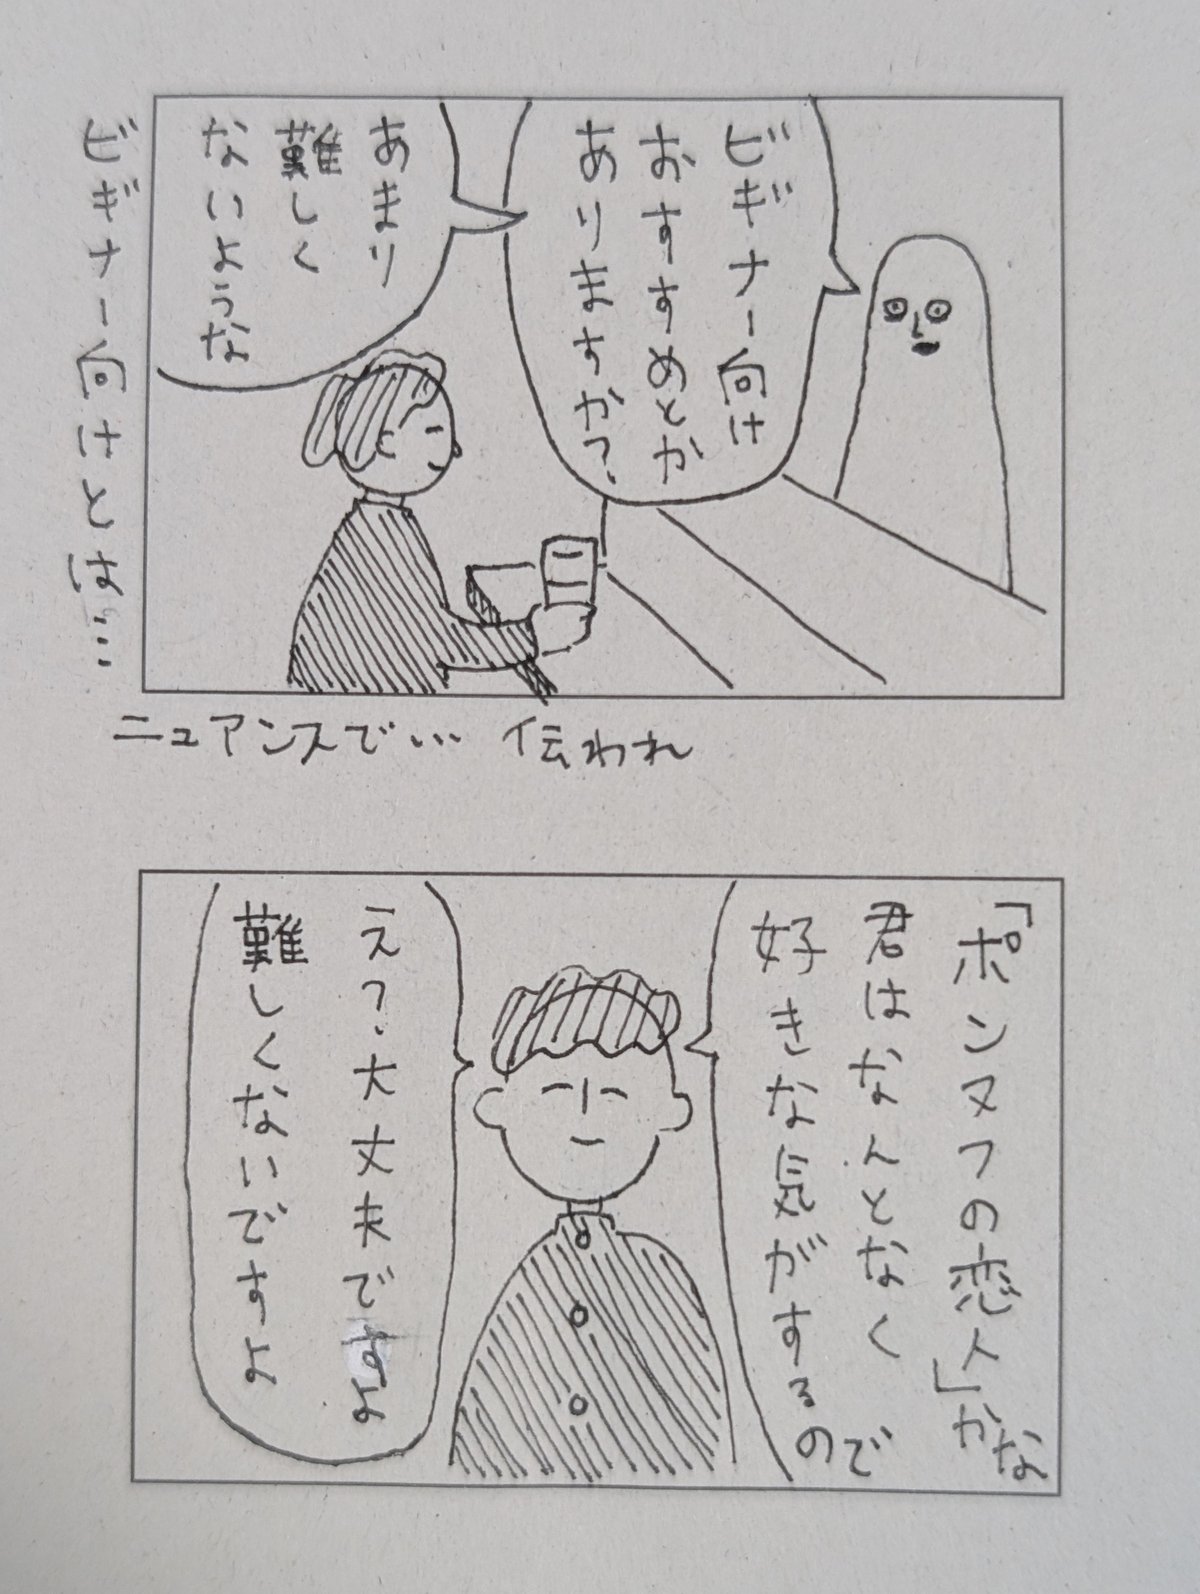 ビギナー向け
おすすめとか
ありますか?
あまり
難しく
ないような
ビギナー向けとは…
ニュアンスで… 伝われ
「ポンヌフの恋人」かな
君はなんとなく
好きな気がするので
え?大丈夫ですよ
難しくないですよ